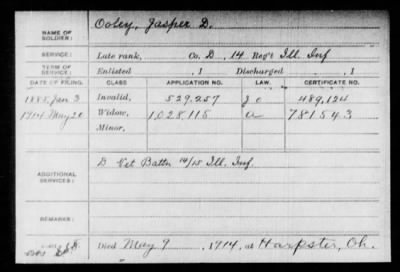 NAME OF SOLDIER: Ooley, Jasper D.
SERVICE: Late rank, Co. D, 14 Reg't Ill. Inf
TERM OF SERVICE: Enlisted , 1 Discharged , 1
DATE OF FILING. CLASS APPLICATION NO. LAW. CERTIFICATE NO.
1888 Jan 3 Invalid, 529,257 489,124
1914 May 20 Widow, 1,028,115 781543
Minor,
ADDITIONAL SERVICES: D Vet Battn 14/15 Ill. Inf.
REMARKS:
Died May 9, 1914, at Harpster, Oh.